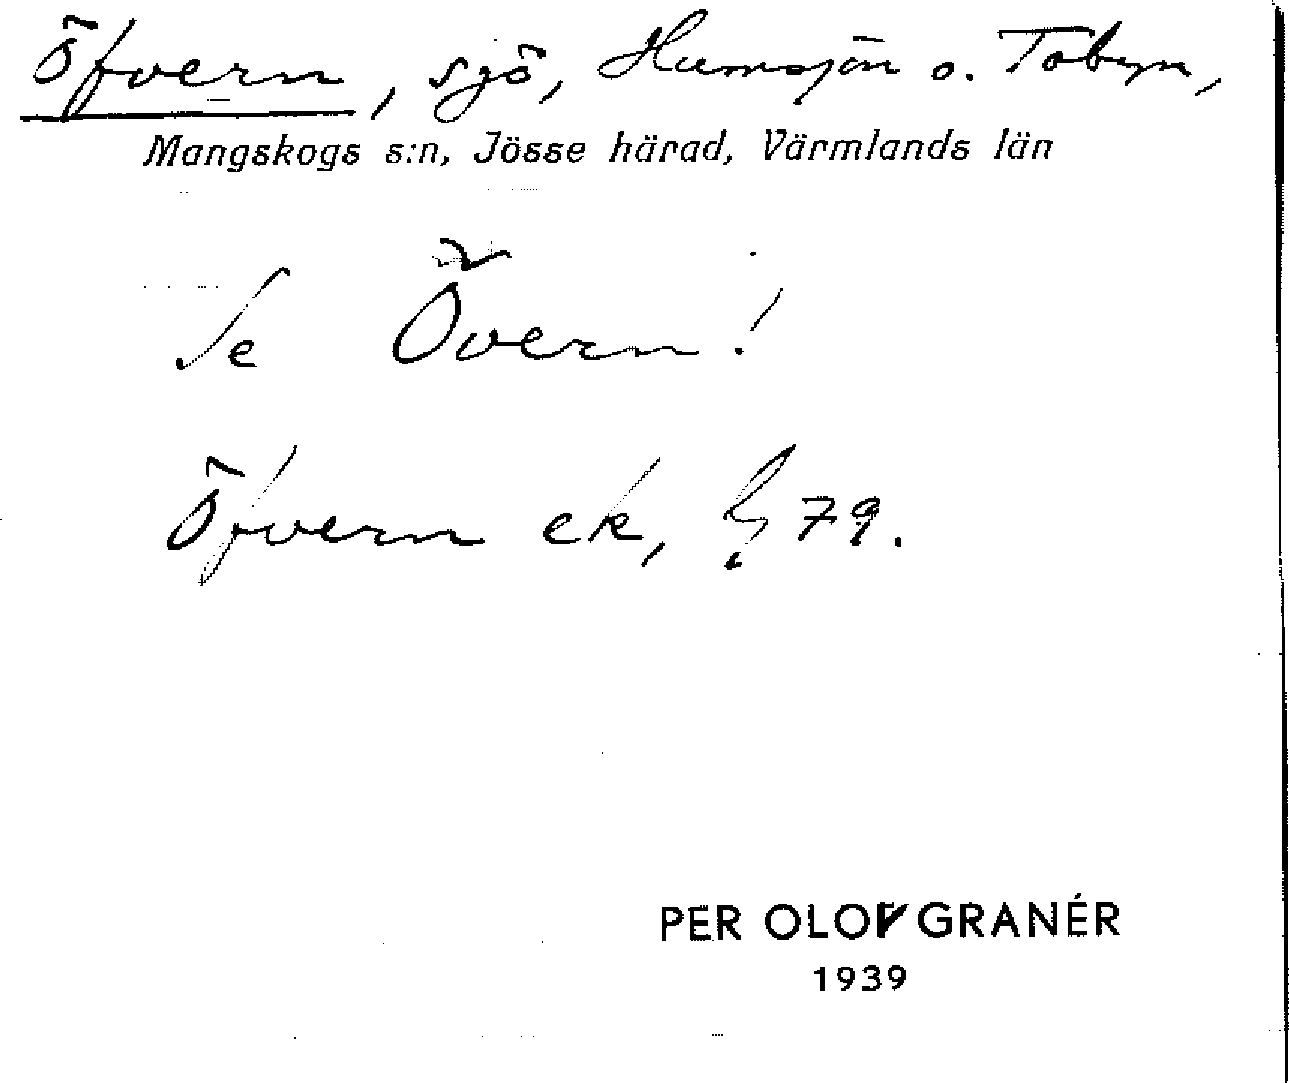 Öfvern, sjö, Humsjön o. Tobyn,
Mangskogs s:n, Jösse härad, Värmlands län
Se Övern!
Öfvern ek, 79.
PER OLOF GRANÉR
1939